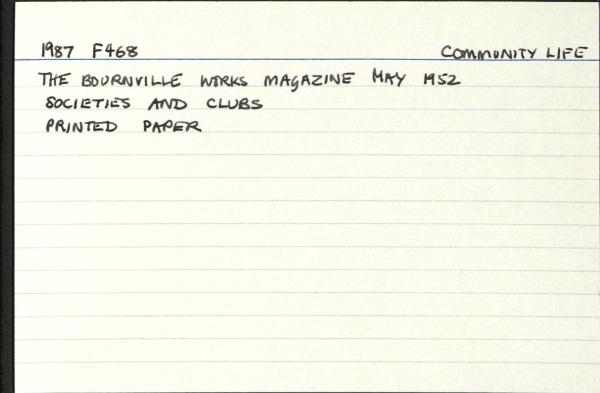 1987 F468 COMMUNITY LIFE
THE BOURNVILLE WORKS MAGAZINE MAY 1952
SOCIETIES AND CLUBS
PRINTED PAPER